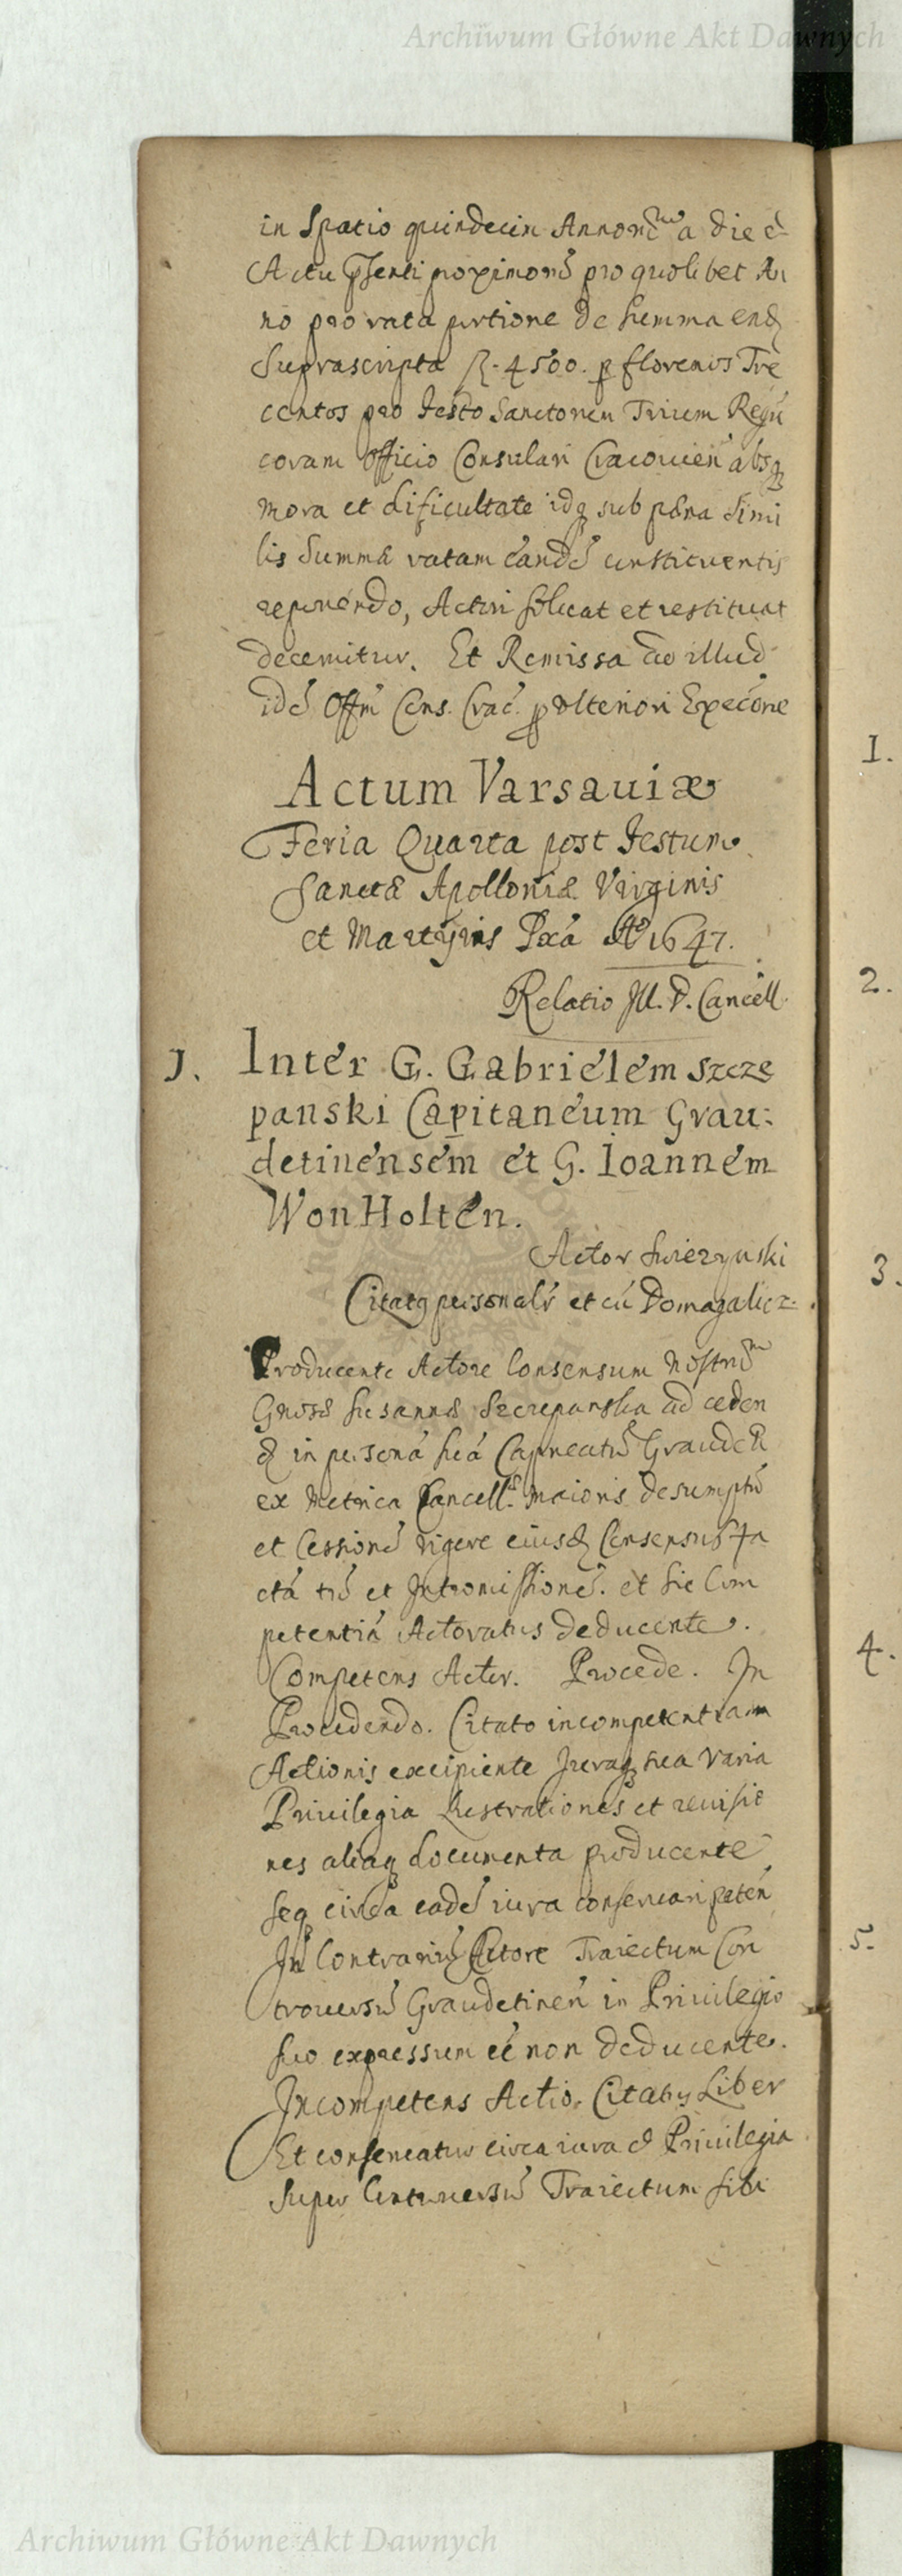 Archiwum Główne Akt Dawnych
in Spatio quindecim Annorũ a die et
Actu p̃senti proximorũ pro quolibet An
no pro rata portione de summa ead
suprascripta fl. 4500. p florenos Tre
centos pro festo Sanctorum Trium Regũ
coram Officio Consulari Cracovieñ absq
mora et dificultate idq sub pæna simi
lis Summæ ratam eandẽ constituentis
reponendo, Actori soluat et restituat
decernitur. Et Remissa ad illud
idẽ Offm̃ Cons. Crac̃. p vlteriori Execõne
Actum Varsauiæ
Feria Quarta post Festum
Sanctæ Apolloniæ Virginis
et Martyris Pxã Aº 1647.
Relatio Ill. D. Cancell.
1. Inter G. Gabrielem Szcze
panski Capitaneum Grau:
detinensem et G. Ioannem
Won Holten.
Actor Swierzynski
Citatq personalr̃ et cũ Domagalicz.
Producente Actore Consensum Nostrum
Gnosæ Susannæ Szczepanska ad ceden
d in personã suã Capneatũ Graudeñ
ex Metrica Cancell. Maioris desumptũ
et Cessionẽ vigore eiusd Consensus fa
ctã tũ et Intromissionẽ. et sic Com
petentiã Actoratus deducente.
Competens Actor. Procede. In
Procedendo. Citato incompetentiam
Actionis excipiente Iuraq sua varia
Priuilegia Lustrationes et reuisio
nes aliaq documenta producente
seq circa eadẽ iura conseruari peteñ
In Contrariũ Actore Traiectum Con
trouersũ Graudetineñ in Priuilegio
suo expressum eẽ non deducente.
Incompetens Actio. Citatus Liber
Et conseruatur circa iura et Priuilegia
super Controuersũ Traiectum sibi
1.
2.
3.
4.
5.
Archiwum Główne Akt Dawnych